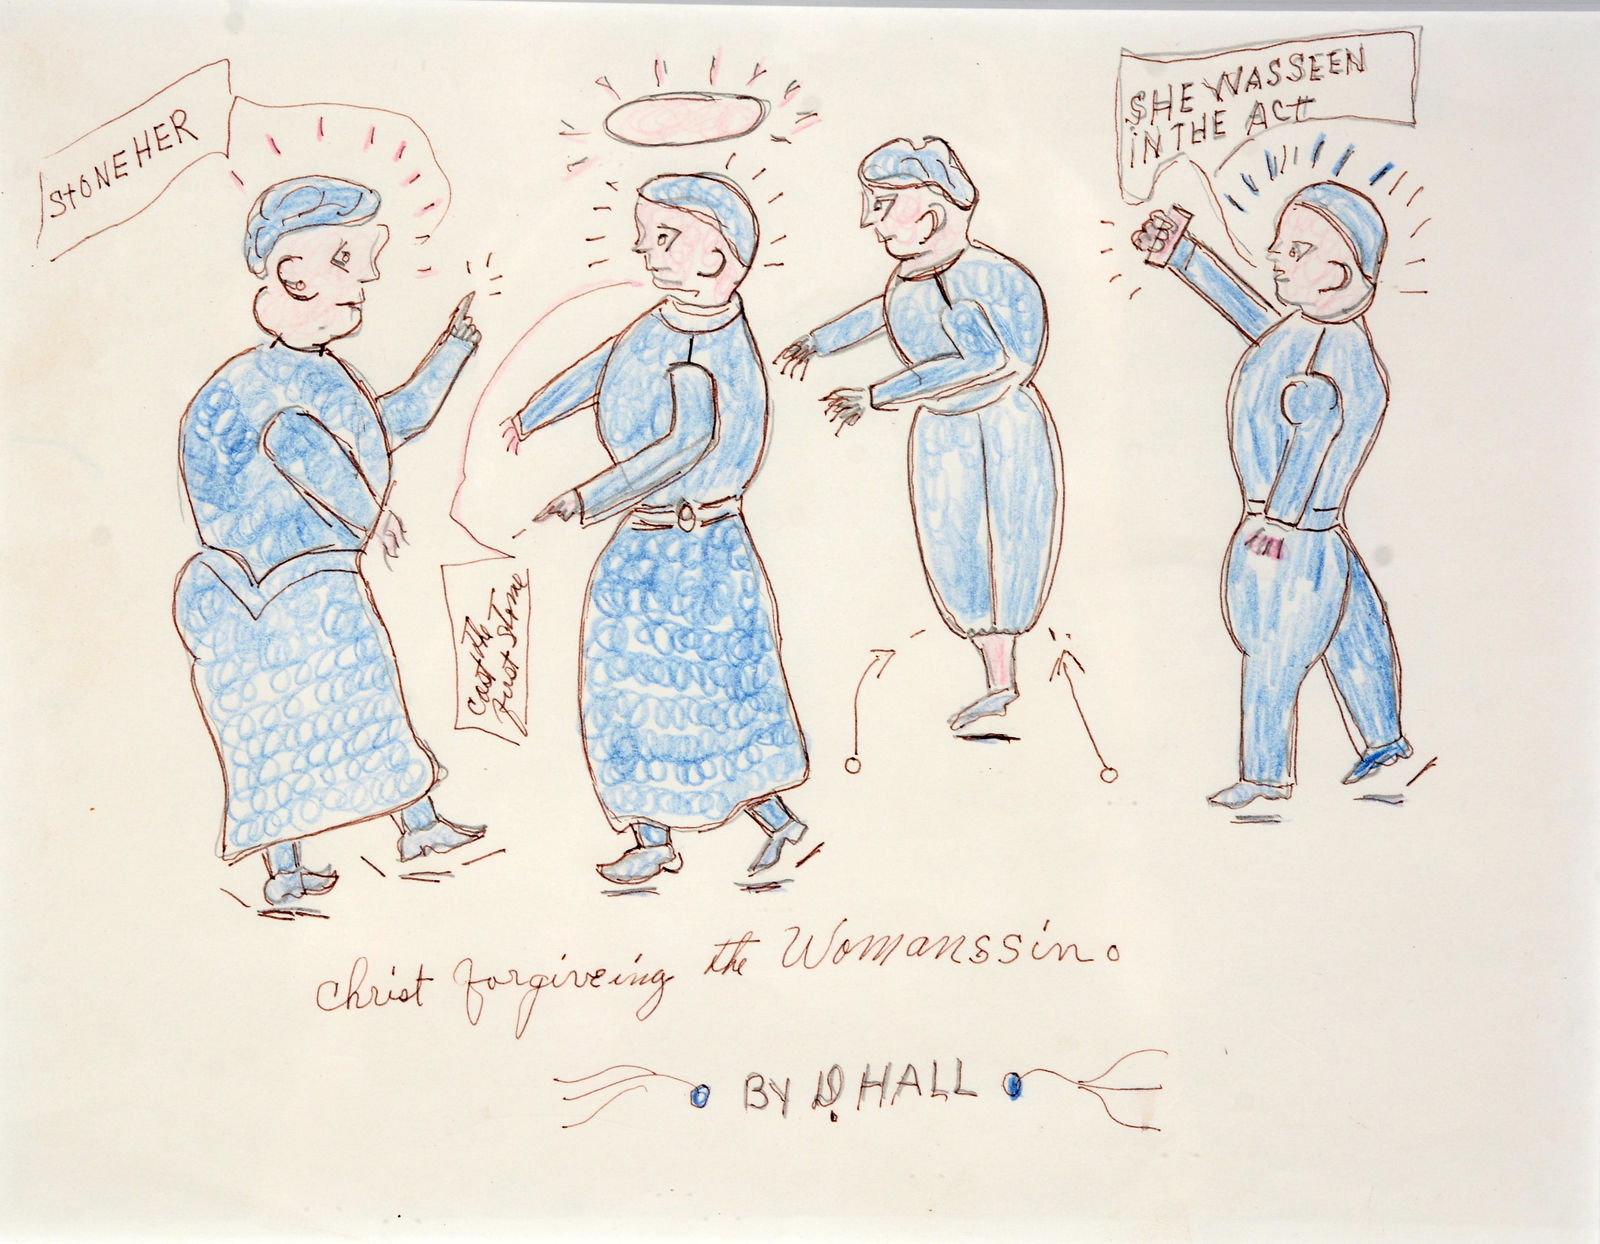 STONEHER
SHE WASSEEN
iN THE ACt
Cast the
first stone
Christ forgiveing the Womanssin.
BY D. HALL